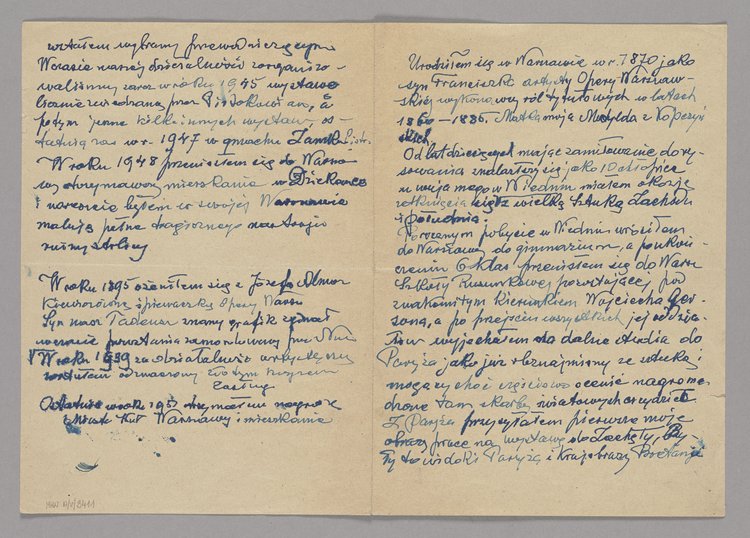 zostałem wybrany przewodniczącym
W czasie naszej działalności zorganizo-
waliśmy zaraz w roku 1945 wystawę
licznie zwiedzaną przez Piotrkowian, a
potem jeszcze kilka innych wystaw, os-
tatnią zaś w r. 1947 w gmachu Zamku
W roku 1948 przeniosłem się do Warsza
wy otrzymawszy mieszkanie w Dziekance
i nareszcie byłem w swojej Warszawie
malując pełne tragicznego nastroju
ruiny stolicy
W roku 1895 ożeniłem się z Józefą
śpiewaczką Opery Warsz
Syn nasz Tadeusz znany grafik zginął
w czasie powstania zamordowany przez
W roku 1939 za działalność artystyczną
zostałem odznaczony złotym krzyżem
zasługi
Ostatnio w roku 1951 otrzymałem nagrodę
Warszawy i mieszkanie
MNW
Urodziłem się w Warszawie w r. 1870 jako
syn Franciszka artysty Opery Warszaw-
skiej wykonawcy ról tytułowych w latach
1860-1886. Matka moja Matylda z
Od lat dziecięcych mając zamiłowanie do ry-
sowania znalazłszy się jako 10 letni chłopiec
u wuja mego w Wiedniu miałem okazję
zetknięcia się z wielką sztuką Zachodu
i południa.
Po rocznym pobycie w Wiedniu wróciłem
do Warszawy do gimnazjum, a po ukoń-
czeniu 6 klas przeniosłem się do Warsz
Szkoły Rysunkowej pozostającej pod
znakomitym kierunkiem Wojciecha Ger-
sona, a po przejściu wszystkich jej oddzia-
łów wyjechałem na dalsze studia do
Paryża jako już obznajmiony ze sztuką i
mogący choć częściowo ocenić nagroma-
dzone tam skarby światowych arcydzieł
Z Paryża przysyłałem pierwsze moje
prace na wystawę do Zachęty. By-
ły to widoki Paryża i krajobrazy Bretanji